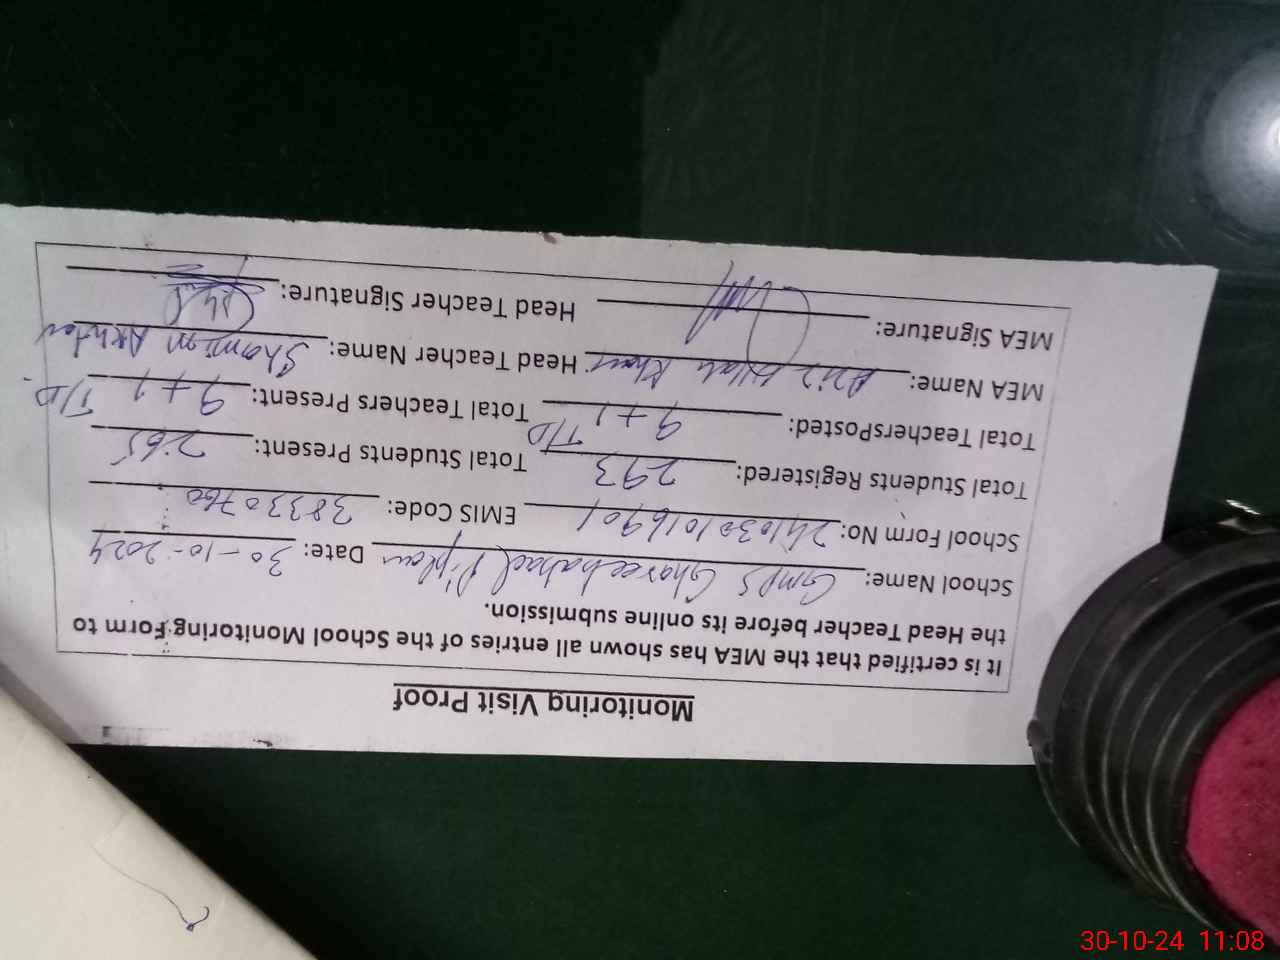 Monitoring Visit Proof
It is certified that the MEA has shown all entries of the School Monitoring Form to
the Head Teacher before its online submission.
School Name: GMPS Date: 30-10-2024
School Form No: 2410301016901 EMIS Code: 38330760
Total Students Registered: 293 Total Students Present: 265
Total TeachersPosted: 9+1 T/D Total Teachers Present: 9+1 T/D
MEA Name: Khan Head Teacher Name: Shamim Akhter
MEA Signature: Head Teacher Signature:
30-10-24 11:08